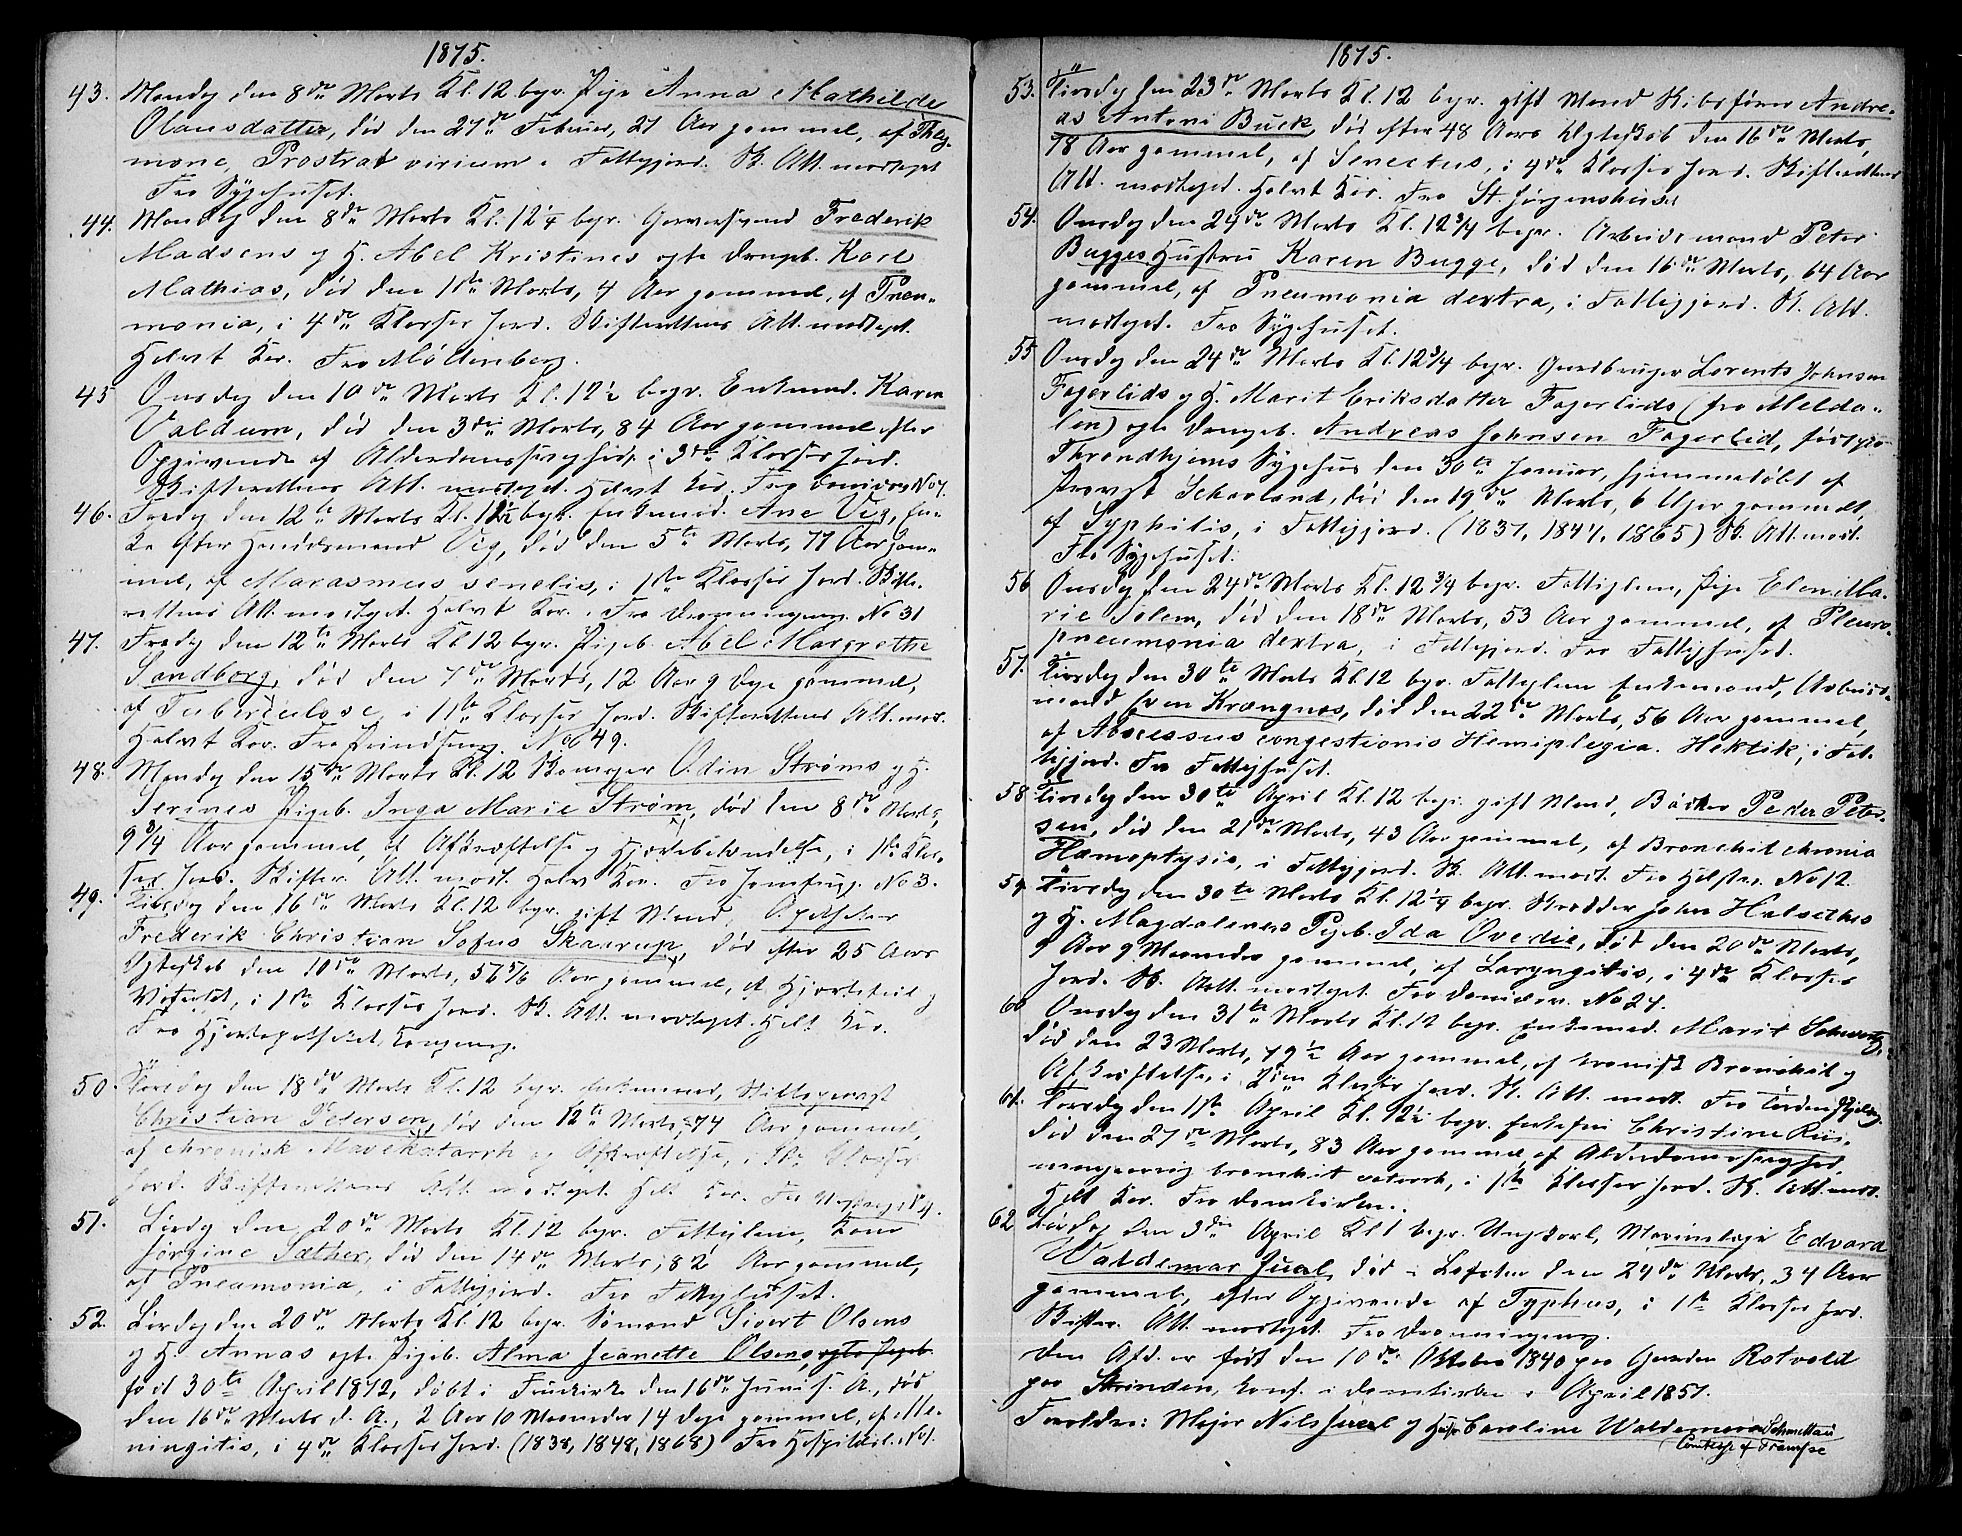 1875.
43. Mandag den 8de Marts Kl. 12 begr. Pige Anna Mathilde
Olausdatter, død den 27de Februar, 21 Aar gammel, af Phleg-
mone, Prostrat virium. Fattigjord. Sk. Att. modtaget
Fra Sygehuset.
44. Mandag den 8de Marts Kl. 12¼ begr. Garversvend Frederik
Madsens og H. Abel Kristines egte Drengeb. Karl
Mathias, død den 1ste Marts, 4 Aar gammel, af Pneu-
monia, i 4de Klasses Jord. Skifterettens Att. modtaget.
Halvt Kor. Fra Møllenberg.
45 Onsdag den 10de Marts Kl. 12½ begr. Enkemd. Karen
Valdum, død den 3die Marts, 84 Aar gammel efter
Opgivende af Alderdomssvaghed, i 3die Klasses Jord.
Skifterettens Att. modtaget. Halvt Kor.
46. Fredag den 12te Marts Kl. 12½ begr. Enkemd. Ane Vig, En-
ke efter Handelsmand Vig, død den 5te Marts, 77 Aar gam-
mel, af Marasmus senelis, i 1ste Klasses Jord. Skifte-
rettens Att. modtaget. Halvt Kor. Fra Dronningensg. No 31
47. Fredag den 12te Marts Kl. 12 begr. Pigeb. Abel Margrethe
Sandborg, død den 7de Marts, 12 Aar 9 Dage gammel,
af Tuberculose, i 1ste Klasses Jord. Skifterettens Att. mod.
Halvt Kor. Fra Prindsensg. No 49.
48. Mandag den 15de Marts Kl. 12 Odin Strøms og H.
Serines Pigeb. Inga Marie Strøm, død den 8de Marts,
9¾ Aar gammel, af Afkræftelse og Hjertebetændelse, i 1ste Klas-
ses Jord. Skifter. Att. modt. Halv Kor. Fra Jomfrug. No 3.
49. Tirsdag den 16de Marts Kl. 12 begr. gift Mand, Apotheker
Frederik Christian Sofus Skaarup, død efter 25 Aars
Egteskab den 10de Marts, 56 5/6 Aar gammel, af Hjertefeil og
i 1ste Klasses Jord. Sk. Att. modtaget. Helt Kor.
Fra Hjorteapotheket, Kongensg.
50. Torsdag den 18de Marts Kl. 12 begr. Enkemand,
Christian Petersen, død den 12te Marts, 74 Aar gammel,
af chronisk Mavekatarrh og Afkræftelse, i 1ste Klasses
Jord. Skifterettens Att. modtaget. Helt Kor. Fra
51. Lørdag den 20de Marts Kl. 12 begr. Fattiglem, Kone
Jørgine Sæther, død den 14de Marts, 82 Aar gammel,
af Pneumonia, i Fattigjord. Fra Fattighuset.
52. Lørdag den 20de Marts Kl. 12 begr. Sømand Sivert Olsens
og H. Annas egte Pigeb. Alma Jeanette Olsens, egte Pigeb.
født 30te April 1872, døbt i Fruekirke den 16de Juni s. A., død
den 16de Marts d. A., 2 Aar 10 Maaneder 14 Dage gammel, af Me-
ningitis, i 4de Klasses Jord. (1838, 1848, 1868) Fra Hospitalsl. No 1.
1875.
53. Tirsdag den 23de Marts Kl. 12 begr. gift Mand Andre-
as Antoni Buck, død efter 48 Aars Egteskab den 16de Marts,
78 Aar gammel, af Senectus, i 4de Klasses Jord. Skifterettens
Att. modtaget. Halvt Kor. Fra St. Jørgenshuset
54. Onsdag den 24de Marts Kl. 12¾ begr. Arbeidsmand Peter
Bugges Hustru Karen Bugge, død den 16de Marts, 64 Aar
gammel, af Pneumonia dextra, i Fattigjord. Sk. Att.
modtaget. Fra Sygehuset.
55 Onsdag den 24de Marts Kl. 12¾ begr. Gaardbruger Lorents Johnsen
Fagerlids og H. Marit Eriksdatter Fagerlids (fra Melda-
len) egte Drengeb. Andreas Johnsen Fagerlid, født paa
Throndhjems Sygehus den 30te Januar, hjemmedøbt af
Provst Schavland, død den 19de Marts, 6 Uger gammel,
af Syphilis, i Fattigjord. (1837, 1847, 1865) Sk. Att. modt.
Fra Sygehuset.
56 Onsdag den 24de Marts Kl. 12¾ begr. Fattiglem, Pige Elen Ma-
rie Solem, død den 18de Marts, 53 Aar gammel, af Pleuro-
pneumonia dextra, i Fattigjord. Fra Fattighuset.
57. Tirsdag den 30te Marts Kl. 12 begr. Fattiglem Enkemand, Arbeids-
mand Even Krangnæs, død den 22de Marts, 56 Aar gammel,
af Abscessus congestionis Hemiplegia. Hektik, i Fat-
tigjord. Fra Fattighuset.
58 Tirsdag den 30te April Kl. 12 begr. gift Mand, Bødker Peder Peter-
sen, død den 21de Marts, 43 Aar gammel, af Bronchit chronia
Hæmoptysis, i Fattigjord. Sk. Att. modt. No 12.
59. Tirsdag den 30te Marts Kl. 12¼ begr. Skrædder John Halsethes
og H. Magdalenes Pigeb. Ida Ovedie, død den 20de Marts,
9 Maaneder gammel, af Laryngitis, i 4de Klasses
Jord. Sk. Att. modtaget. No 24.
60 Onsdag den 31te Marts Kl. 12 begr. Enkemd. Marit Schwartz,
død den 23 Marts, 79½ Aar gammel, af kronisk Bronchit og
Afkræftelse, i 2den Klasses Jord. Sk. Att. modt.
61. Torsdag den 1ste April Kl. 12½ begr. Enkefru Christine Riis,
død den 27de Marts, 83 Aar gammel af Alderdomssvaghed,
mangeaarig bronchit catarrh, i 1ste Klasses Jord. Sk. Att. modt.
Helt Kor. Fra Domkirken.
62 Lørdag den 3die April Kl. 1 begr. Ungkarl, Marinelæge Edvard
Valdemar Juel, død i Lofoten den 24de Marts, 34 Aar
gammel, efter Opgivende af Typhus, i 1ste Klasses Jord.
Skifter. Att. modtaget. Fra Dronningensg.
Den Afd. er født den 10de Oktober 1840 paa Gaarden Rotvold
paa Strinden, konf. i Domkirken i April 1857.
Forældre: Major Nils Juel og Hustru Caroline Waldemara Schmettau
Comtesse af